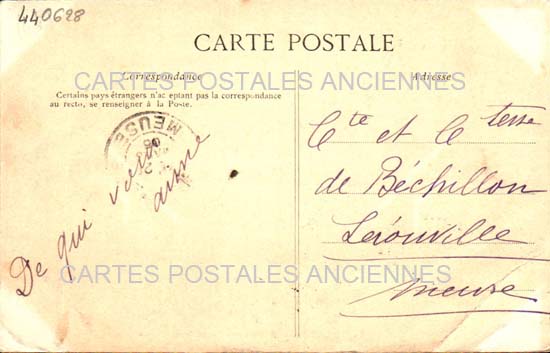 440628
CARTE POSTALE
Correspondance
Adresse
CARTES POSTALES ANCIENNES
Certains pays étrangers n'acceptant pas la correspondance
au recto, se renseigner à la Poste.
MEUSE
08
De qui vous
aime
Cte et Ctesse
de Béchillon
Lérouville
Meuse
CARTES POSTALES ANCIENNES